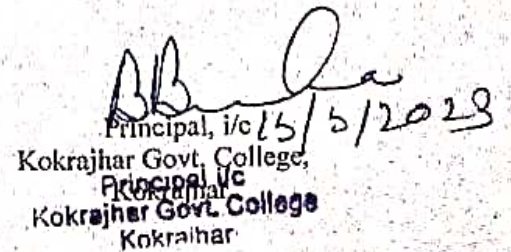 Principal, i/c 15/5/2023
Kokrajhar Govt. College,
Kokrajhar
Principal i/c
Kokrajhar Govt. College
Kokrajhar